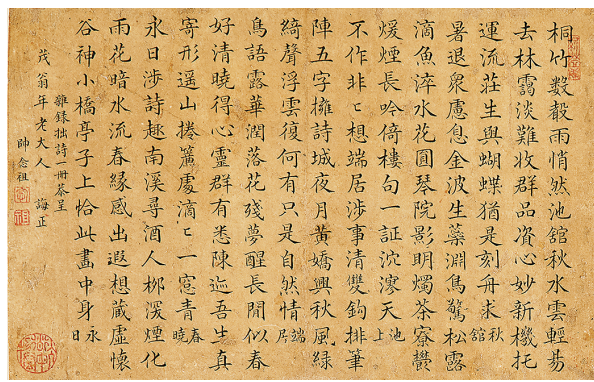 桐竹數縠雨悄然池舘秋水雲輕易
去林靄淡難收群品資心妙新機托
運流莊生與蝴蝶猶是刻舟求 秋舘
暑退衆慮息金波生藥淵鳥驚松露
滴魚淬水花圓琴院影明燭茶寮爨
煖煙長吟倚樓句一証泬漻天 池上
不作非〻想端居涉事清雙鉤排筆
陣五字擁詩城夜月黃嬌興秋風綠
綺聲浮雲復何有只是自然情 端居
鳥語露華潤落花殘夢醒長閒似春
好清曉得心靈群有悉陳迹吾生真
寄形遥山捲簾處滴〻一窓青 春曉
永日涉詩趣南溪尋酒人栁深煙化
雨花暗水流春緣感出遐想蔵虛懷
谷神小橋亭子上恰此畫中身 永日
雜録拙詩一冊恭呈
茂翁年老大人 誨正
帥念祖